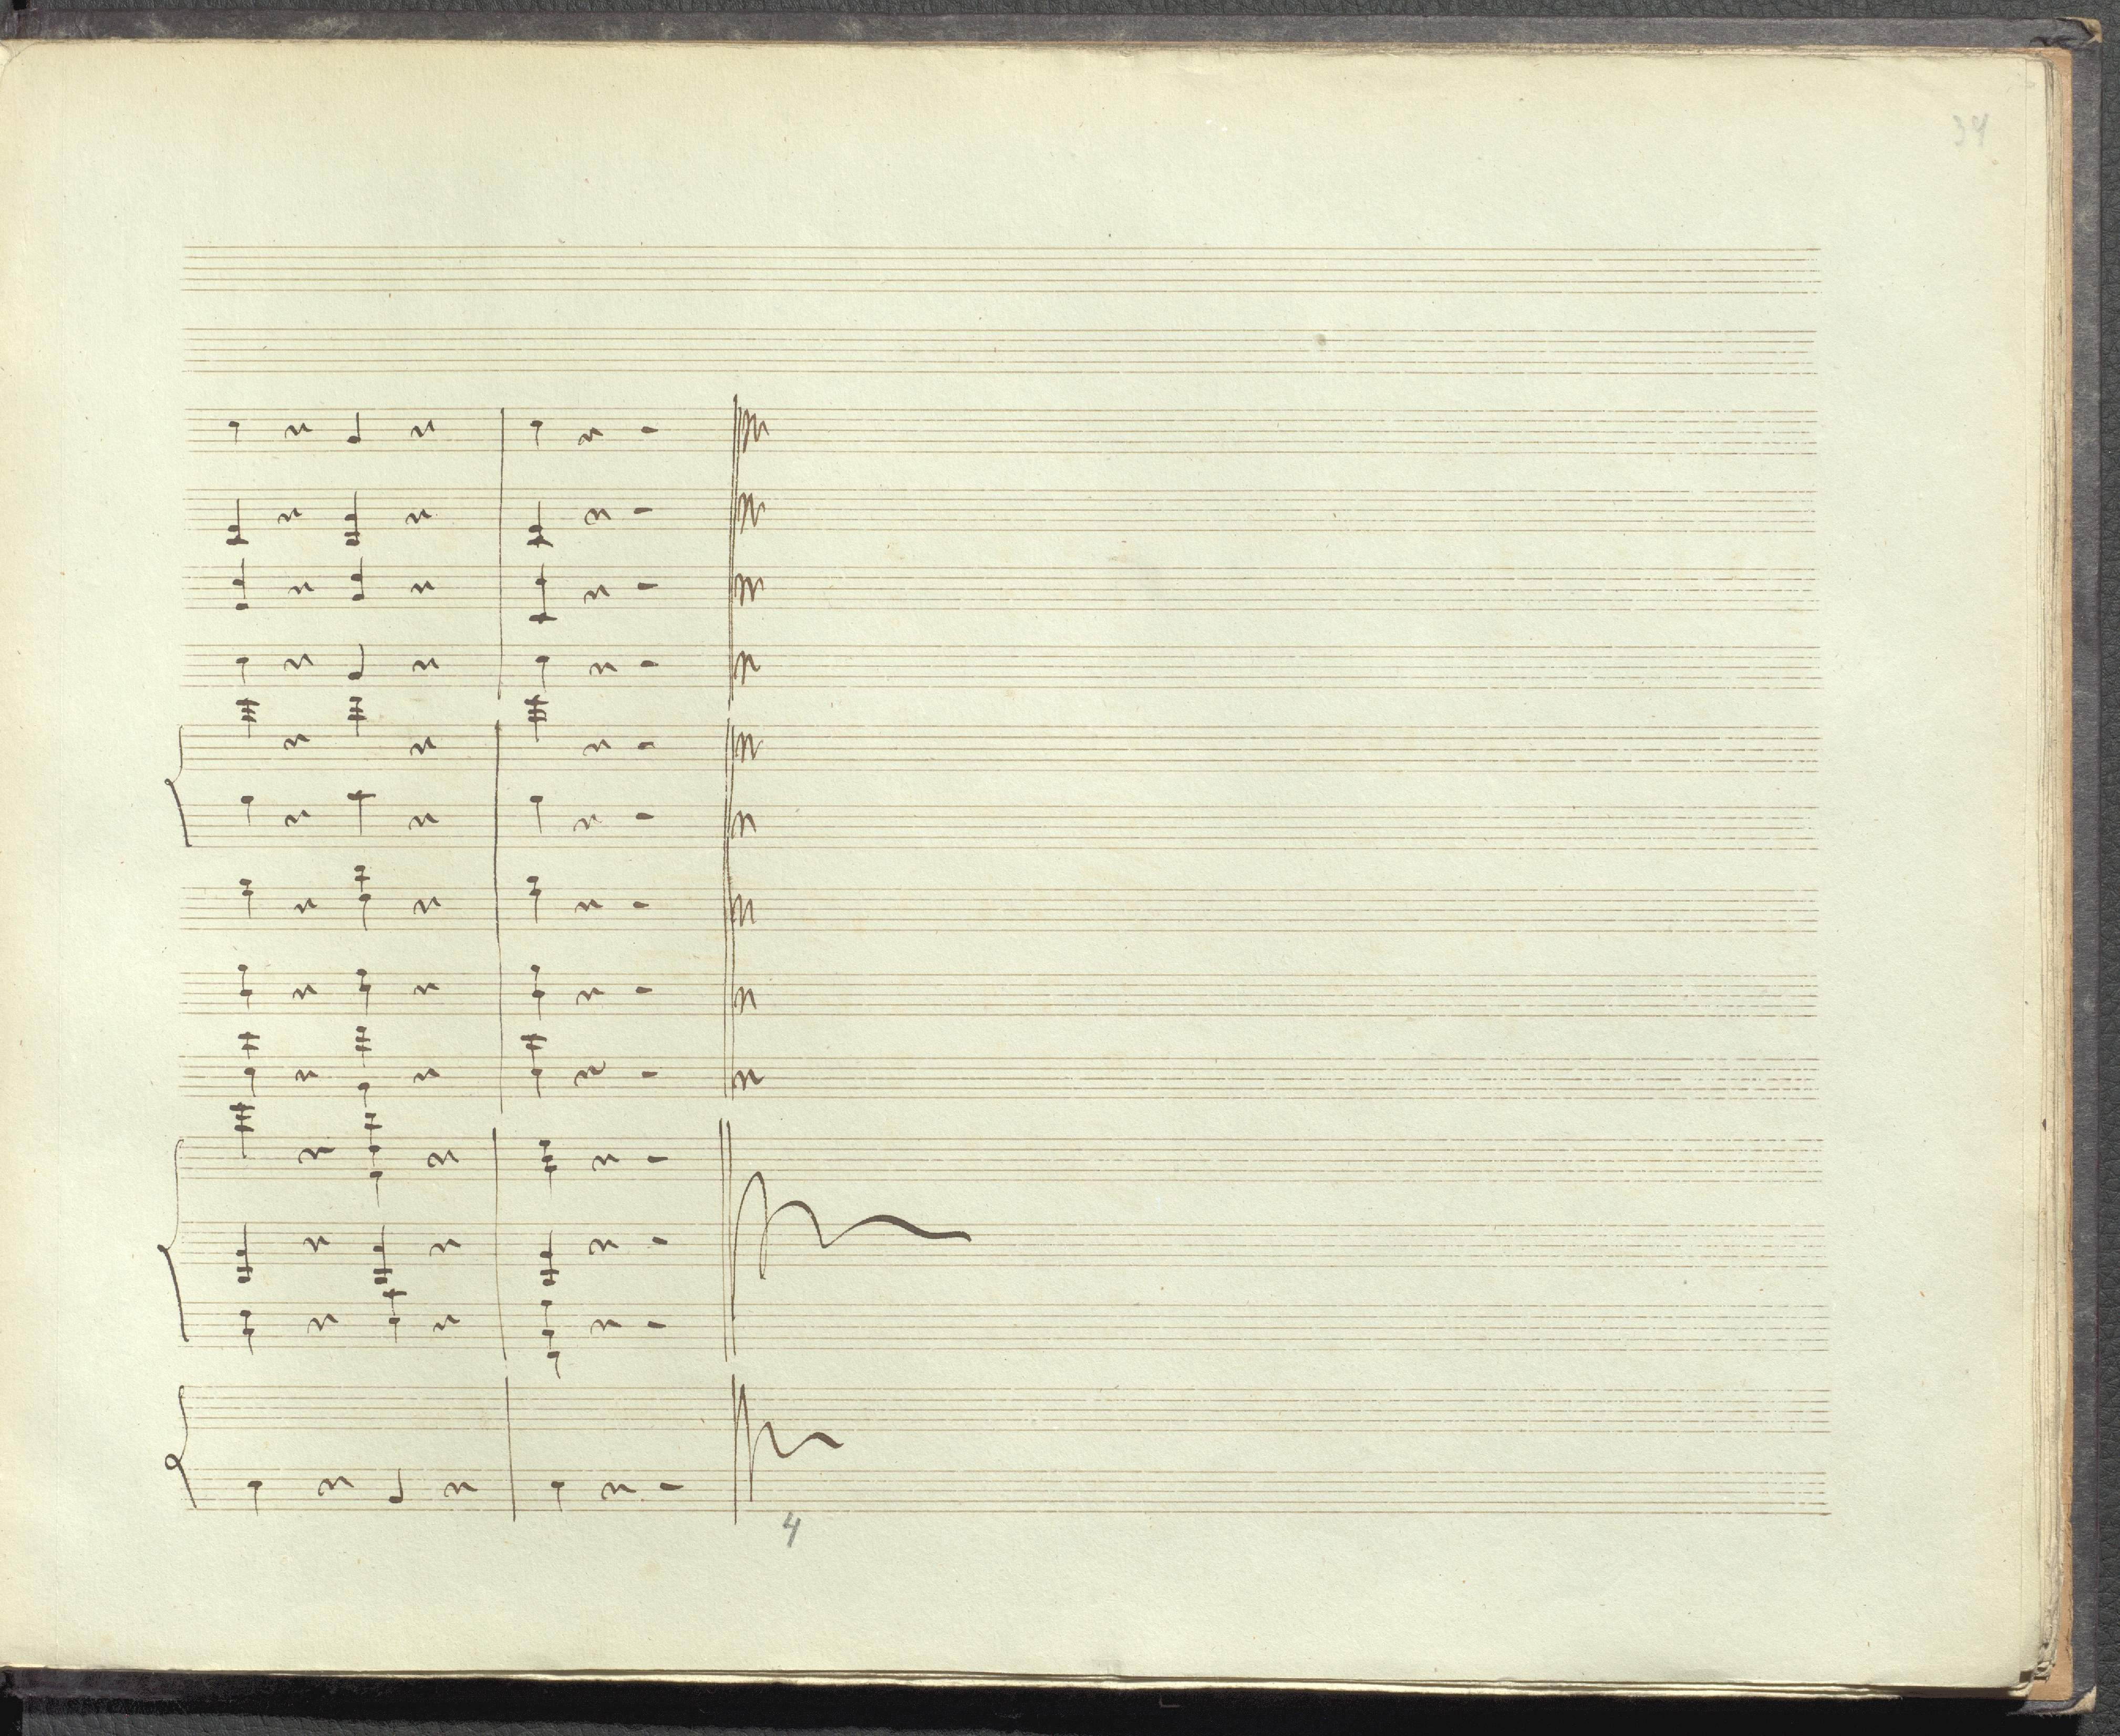 34
4